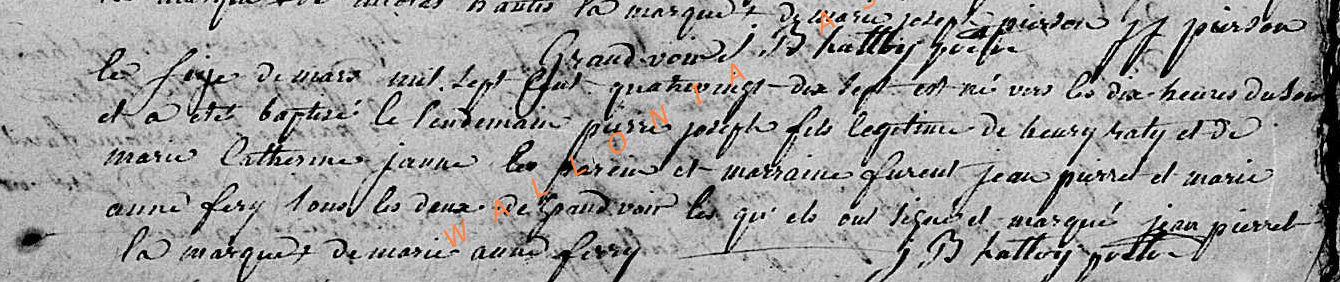 la marque + de marie joseph pierson jj pierson
Grandvoir J B hattoy
le size de mars mil sept cent quatrevingt-dix sept est né vers les dix heures du soir
et a eté baptisé le lendemain pierre joseph fils legitime de henry raty et de
marie Catherine janne les parein et marraine furent jean pierret et marie
anne fery tous les deux de grandvoir les qu'els ont signé et marqué jean pierret
la marque + de marie anne ferry J B hattoy
WALLONIA